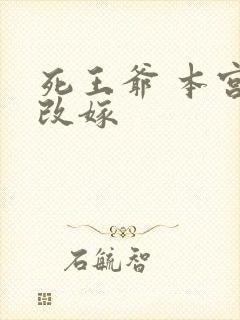 死王爷 本宫
改嫁
石毓智